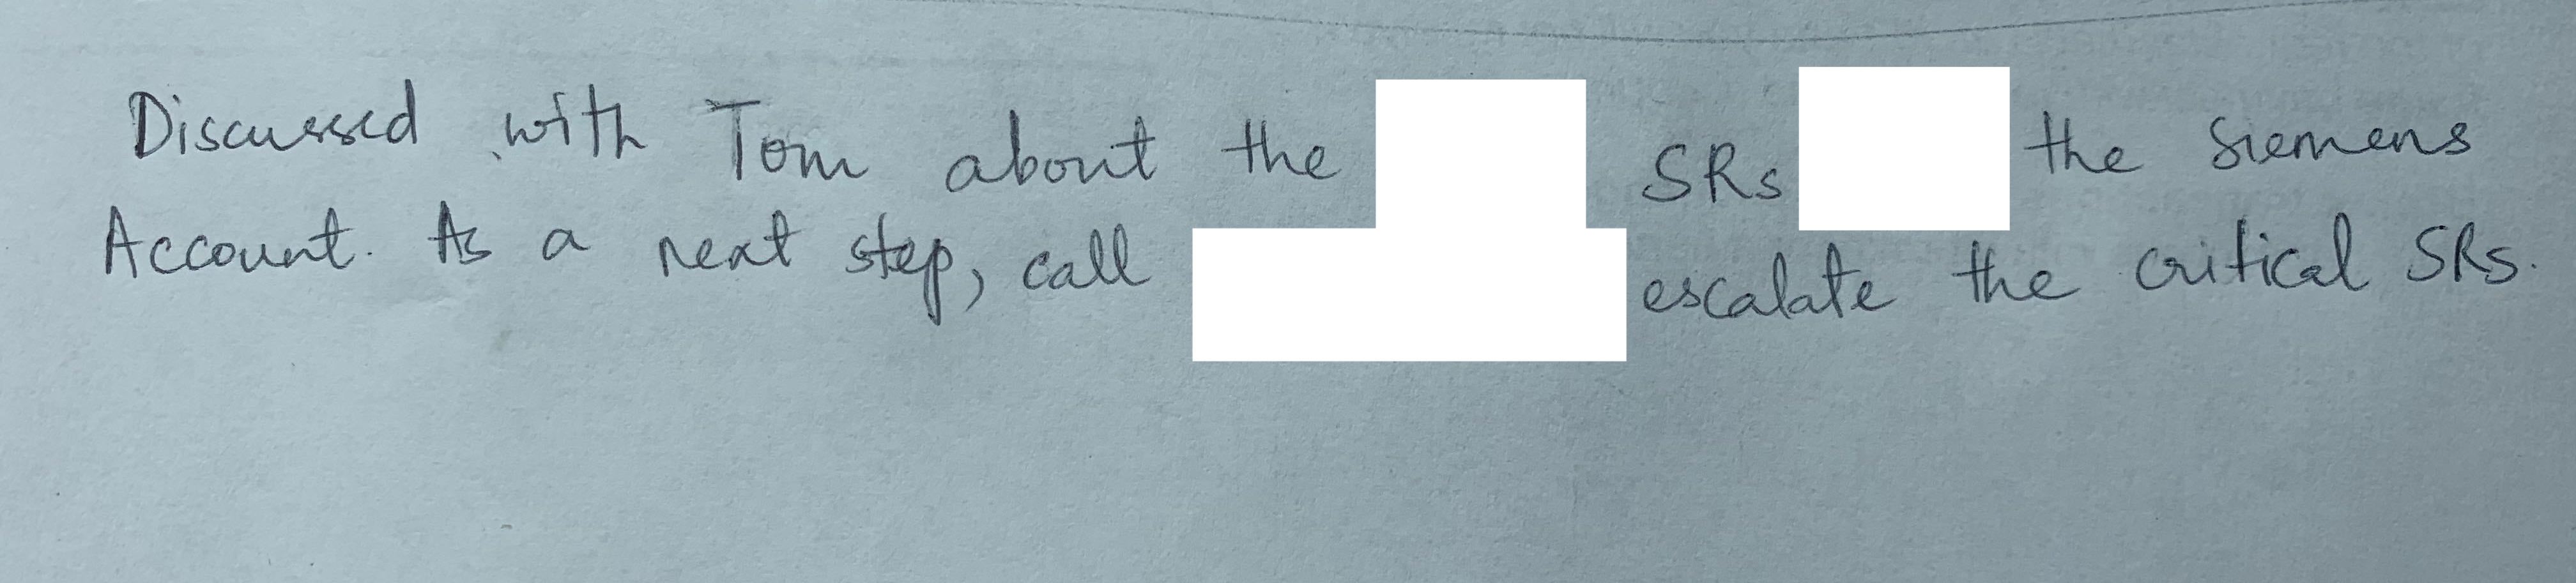 Discussed with Tom about the SRs the Siemens
Account. As a next step, call escalate the critical SRs.